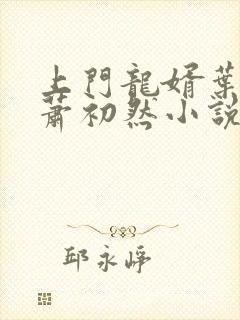 上門龍婿葉
蕭初然小說
邱永崢